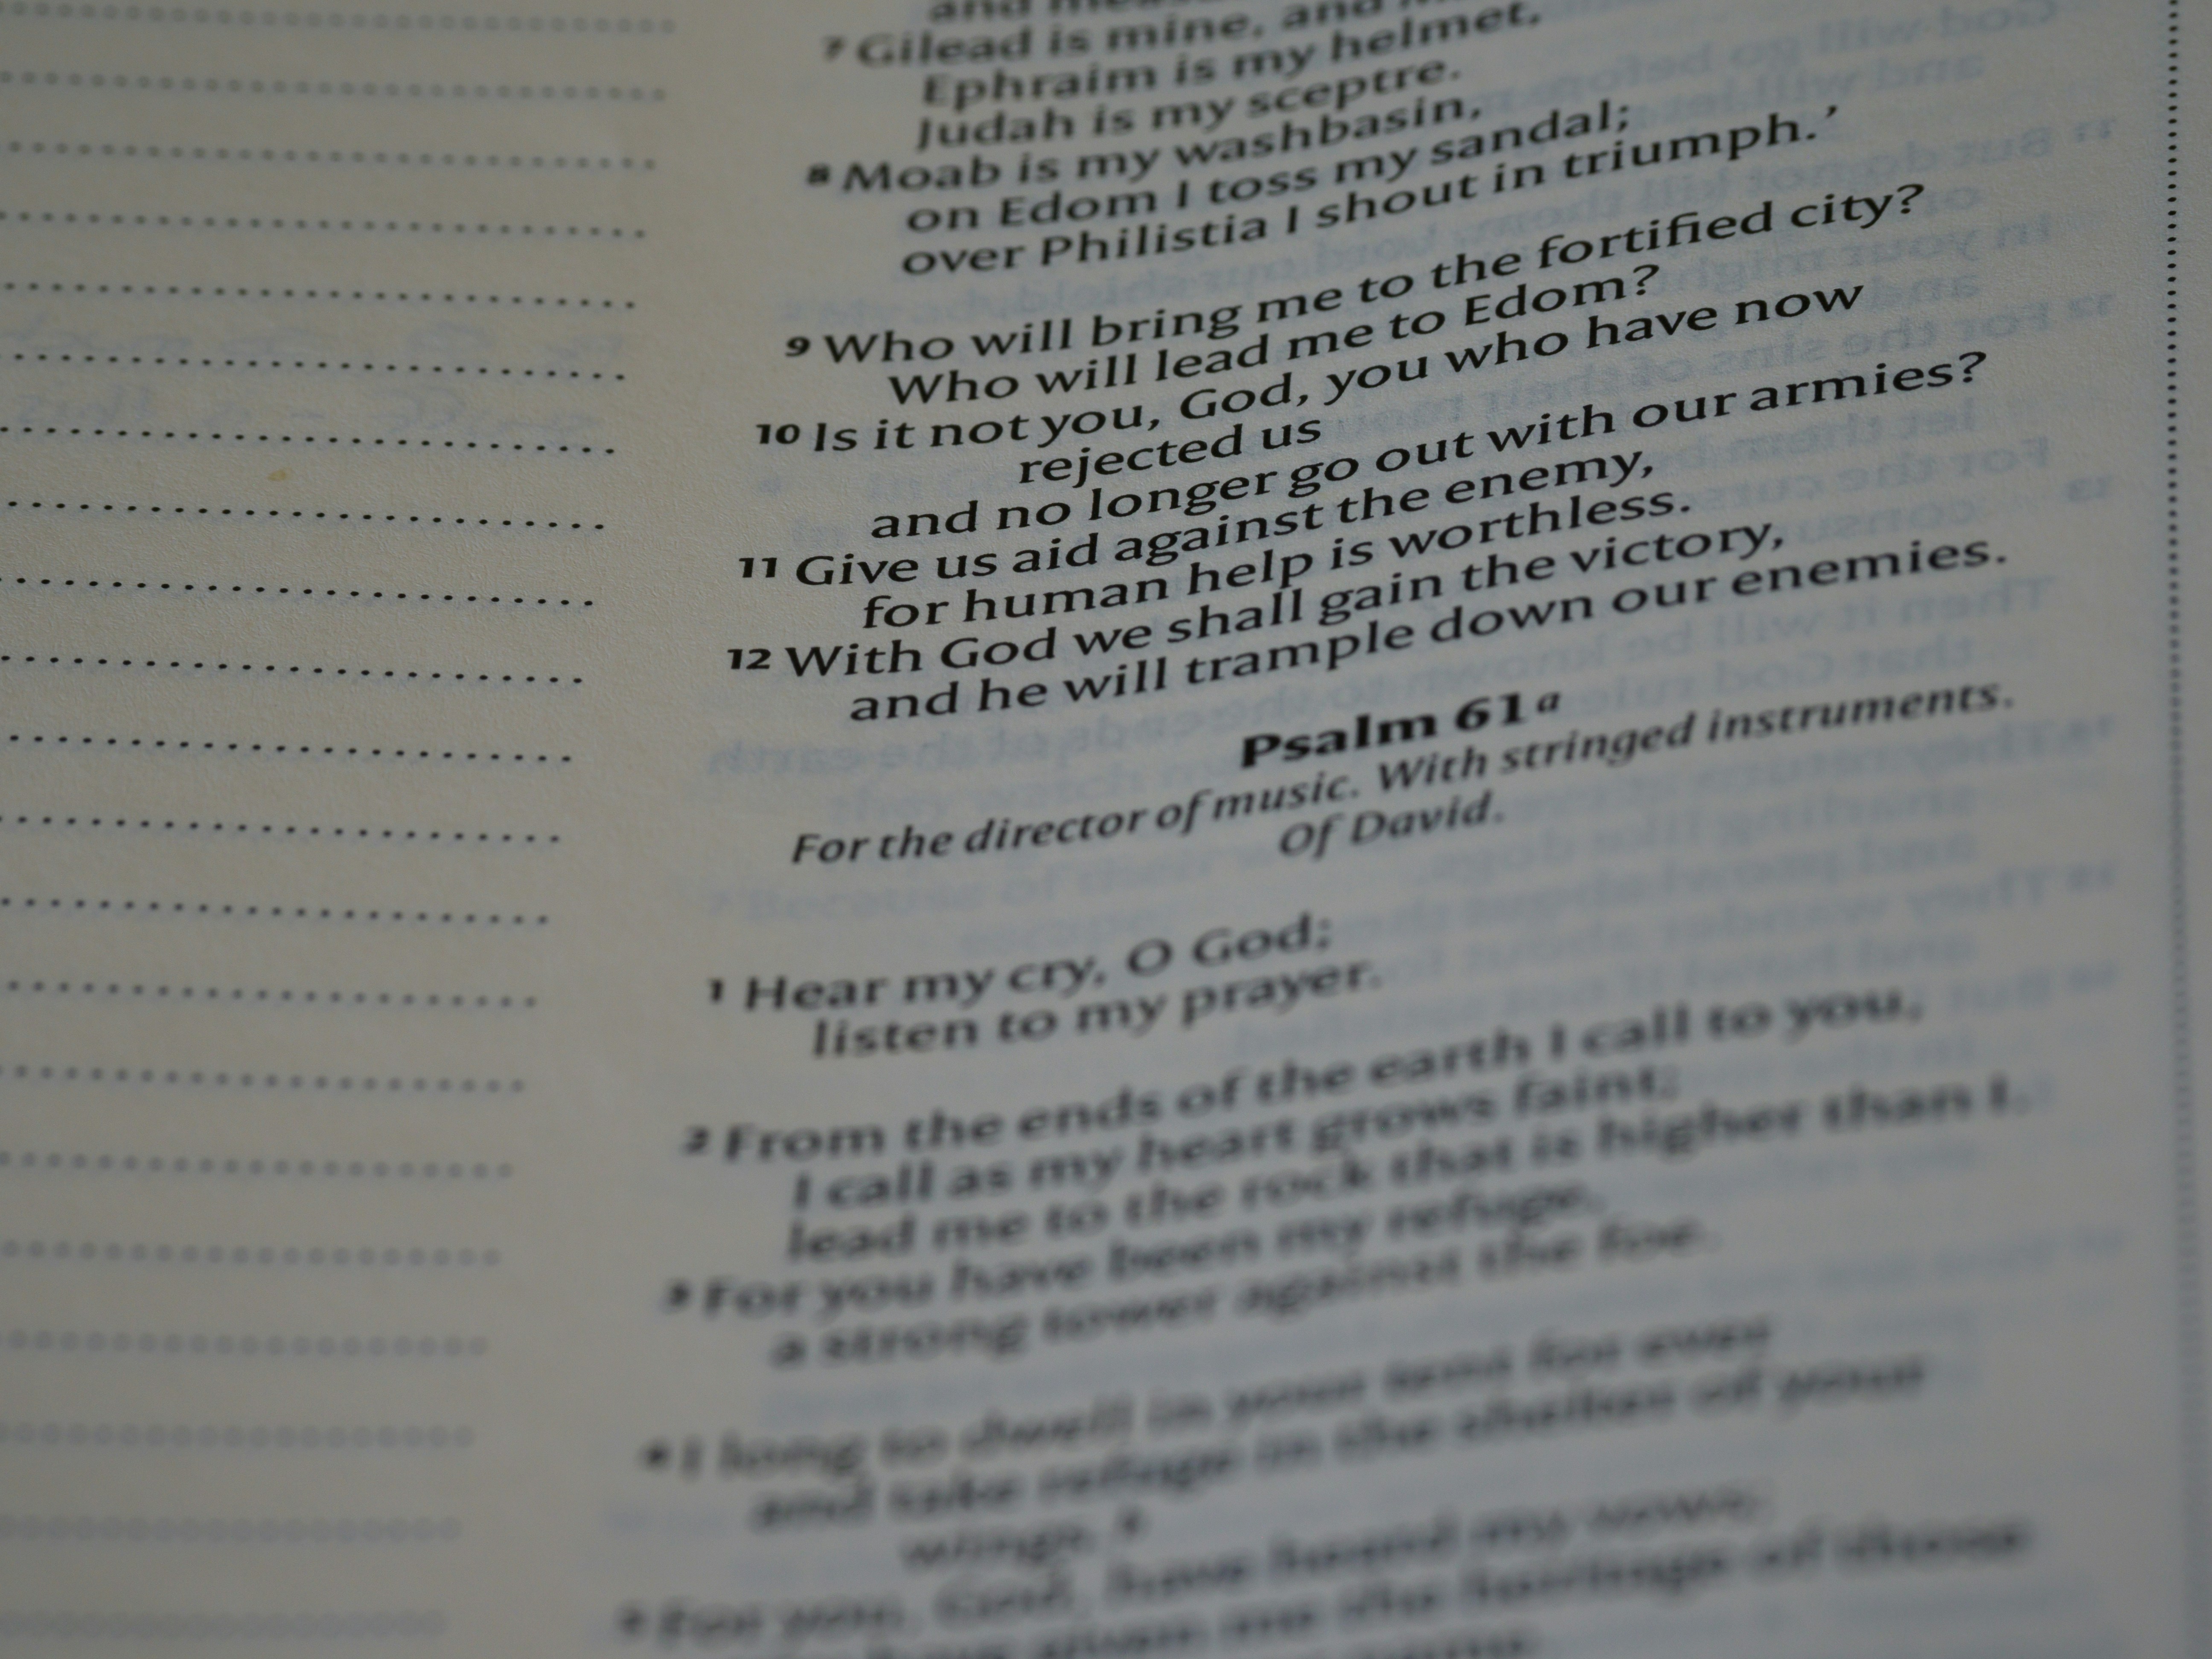 7 Gilead is mine, and
Ephraim is my helmet,
Judah is my sceptre.
8 Moab is my washbasin,
on Edom I toss my sandal;
over Philistia I shout in triumph.’
9 Who will bring me to the fortified city?
Who will lead me to Edom?
10 Is it not you, God, you who have now
rejected us
and no longer go out with our armies?
11 Give us aid against the enemy,
for human help is worthless.
12 With God we shall gain the victory,
and he will trample down our enemies.
Psalm 61a
For the director of music. With stringed instruments.
Of David.
1 Hear my cry, O God;
listen to my prayer.
2 From the ends of the earth I call to you,
I call as my heart grows faint;
lead me to the rock that is higher than I.
3 For you have been my refuge,
a strong tower against the foe.
4 I long to dwell in your tent for ever
and take refuge in the shelter of your
wings.
5 For you, God, have heard my vows;
me the heritage of those